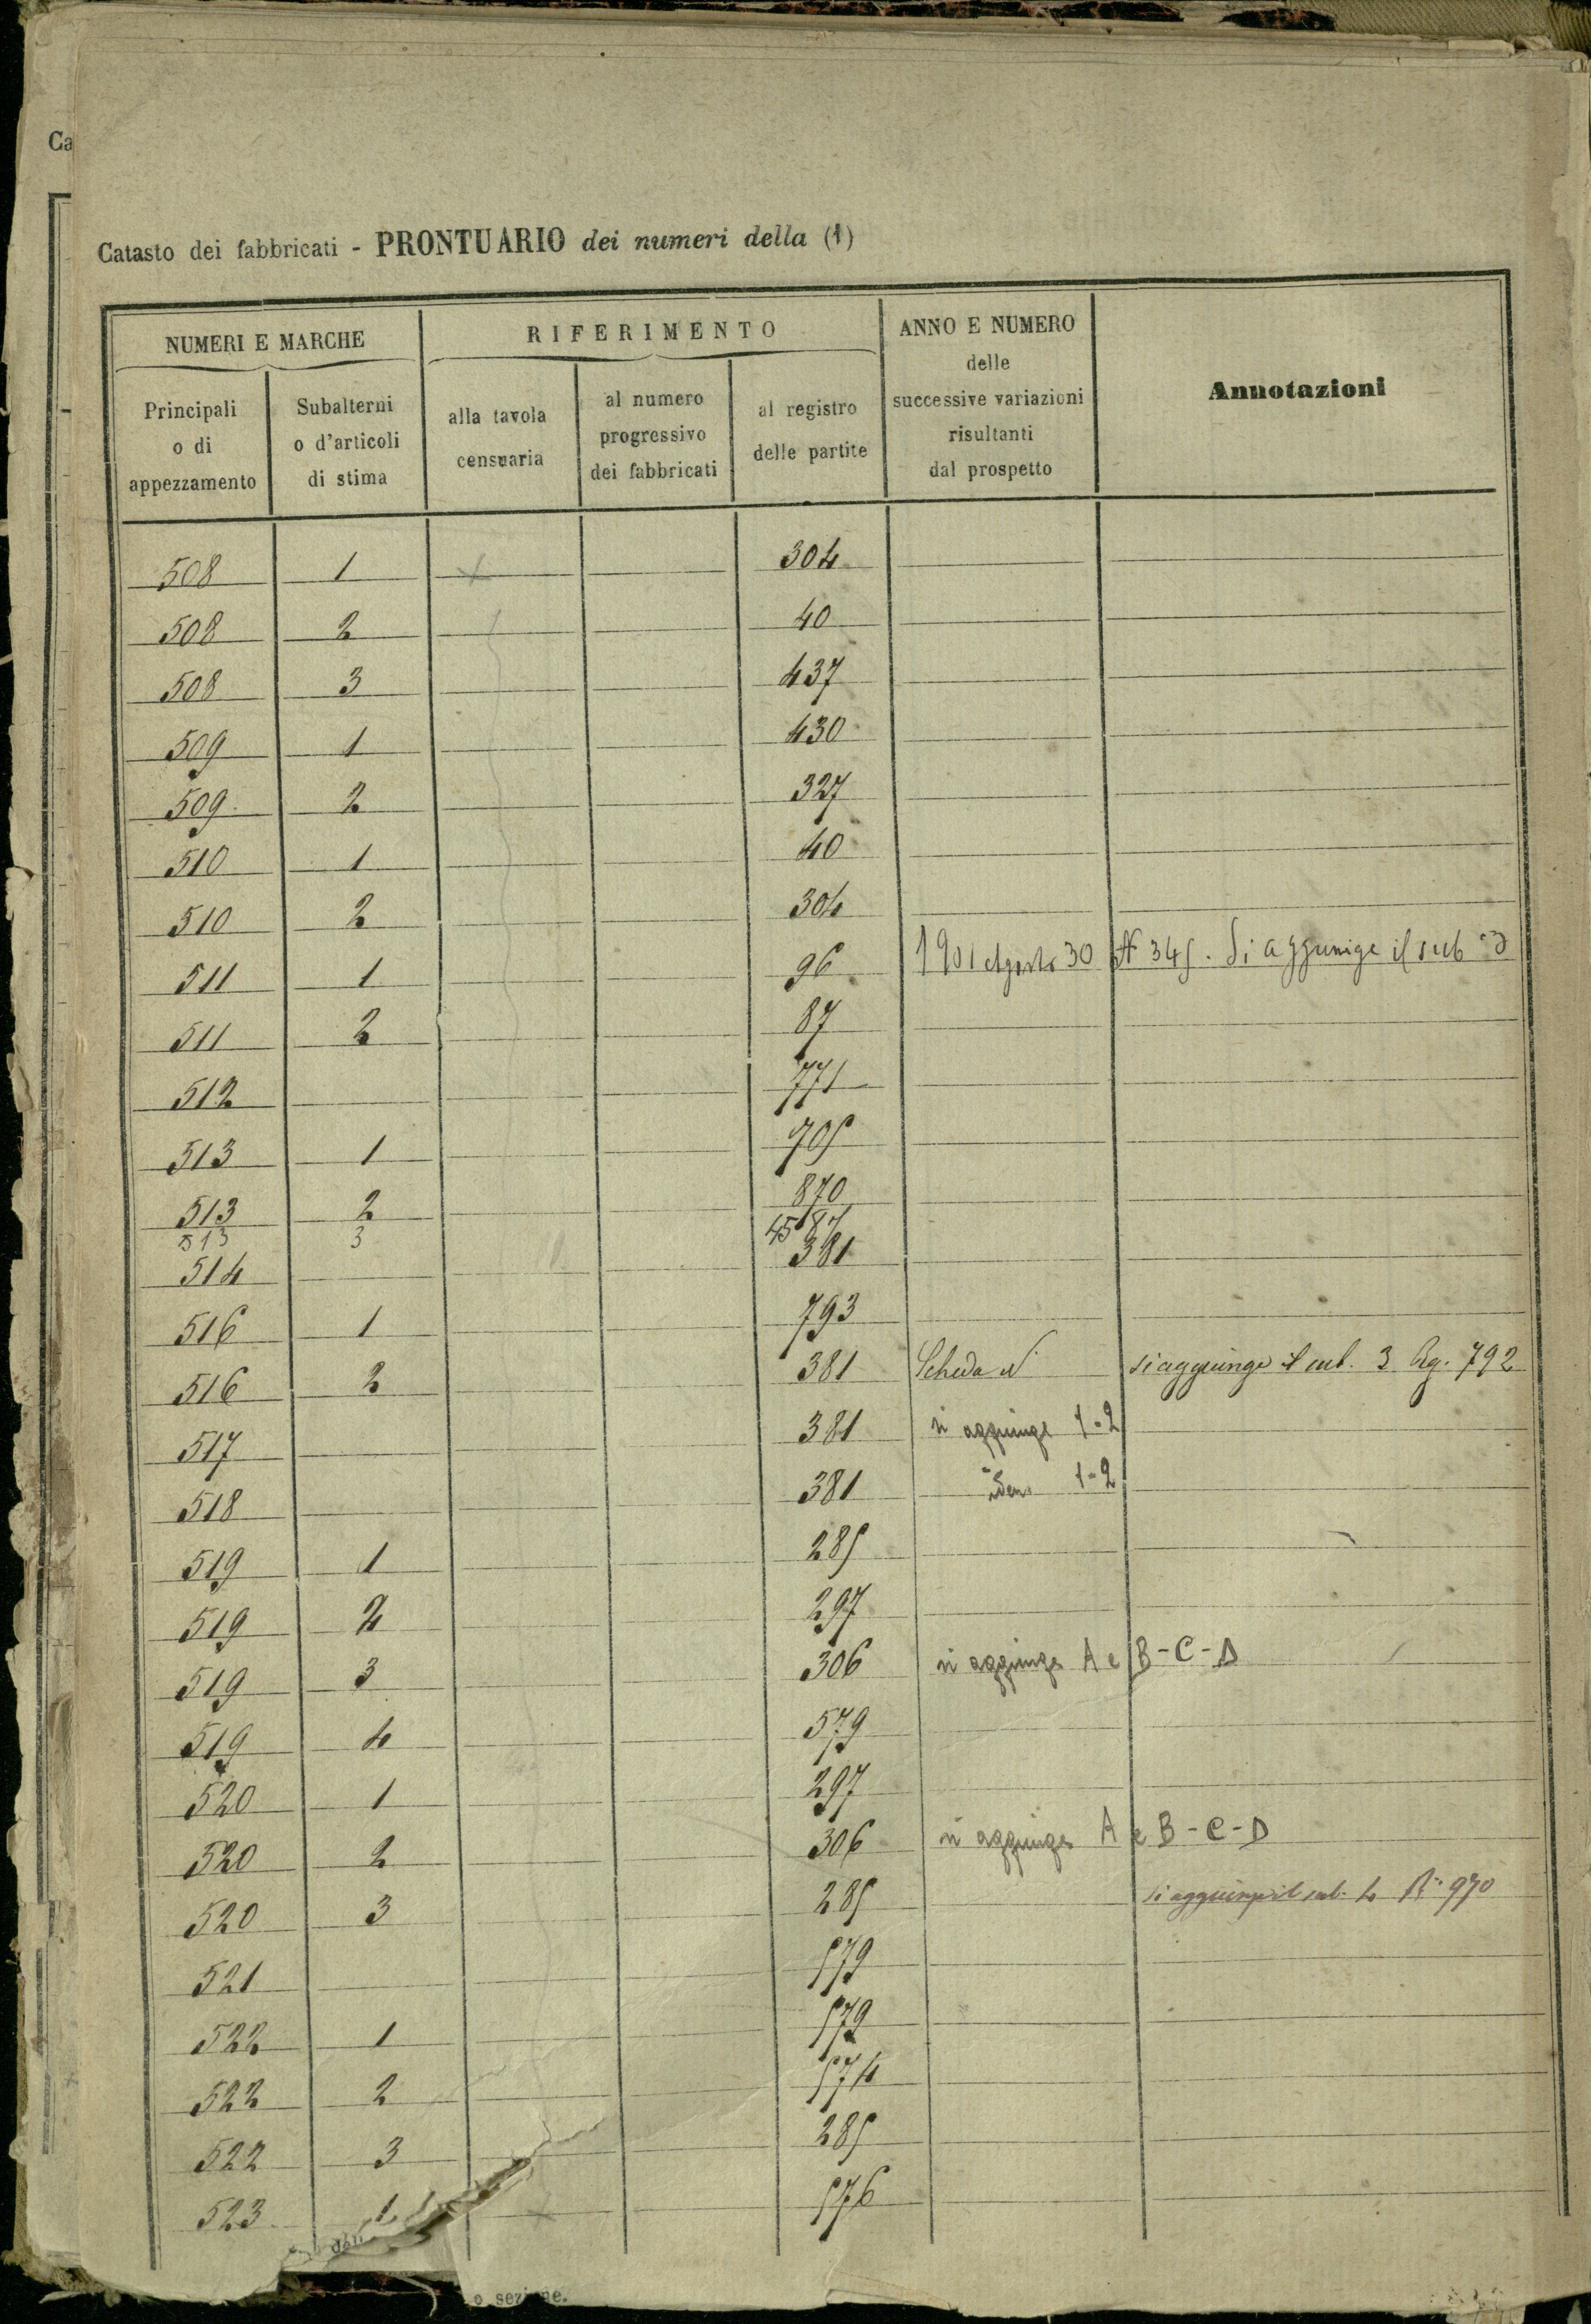 Ca
Catasto dei fabbricati - PRONTUARIO dei numeri della (1)
NUMERI E MARCHE
RIFERIMENTO
ANNO E NUMERO
delle
successive variazioni
risultanti
dal prospetto
Annotazioni
Principali
o di
appezzamento
Subalterni
o d'articoli
di stima
alla tavola
censuaria
al numero
progressivo
dei fabbricati
al registro
delle partite
508 1 304
508 2 40
508 3 437
509 1 430
509 2 327
510 1 40
510 2 304
511 1 96 1901 Agosto 30 N 345. Si aggiunge il sub 3
511 2 87
512 771
513 1 705
513 2 870
513 3 4587
514 381
516 1 793
516 2 381 Scheda N si aggiunge il sub. 3 Rg. 792
517 381 si aggiunge 1=2
518 381 idem 1=2
519 1 285
519 2 297
519 3 306 si aggiunge A e B-C-D
519 4 579
520 1 297
520 2 306 si aggiunge A e B-C-D
520 3 285 si aggiunge il sub. 4 R. 970
521 579
522 1 579
522 2 574
522 3 285
523 1 576
o sezione.